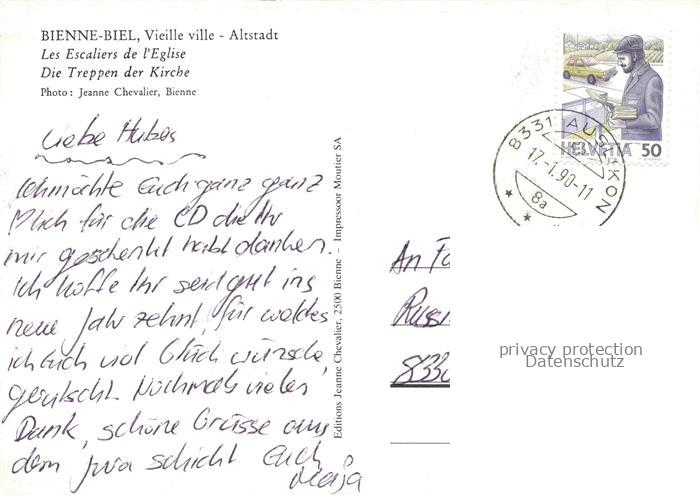 BIENNE-BIEL, Vieille ville - Altstadt
Les Escaliers de l'Eglise
Die Treppen der Kirche
Photo: Jeanne Chevalier, Bienne
Liebe Hubers
Ich möchte Euch ganz ganz
für die CD die Ihr
mir geschenkt habt danken.
Ich hoffe Ihr seid gut ins
neue Jahrzehnt, für welches
ich Euch viel Glück wünsche,
gerutscht. Nochmals vielen
Dank, schöne Grüsse aus
dem Jura schickt Euch
Maja
Editions Jeanne Chevalier, 2500 Bienne - Impressoor Moutier SA
HELVETIA 50
8331 AUSLIKON
17.-1.90-11
8a
An Fa
Russi
8330
privacy protection
Datenschutz